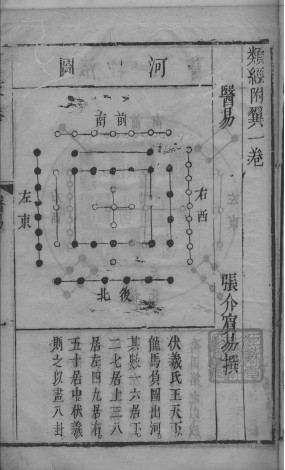 類經附翼一卷
醫易
張介賓易撰
河圖
前南
右西
左東
後北
伏羲氏王天下
龍馬負圖出河
其數一六居下
二七居上三八
居左四九居右
五十居中伏羲
則之以畫八卦